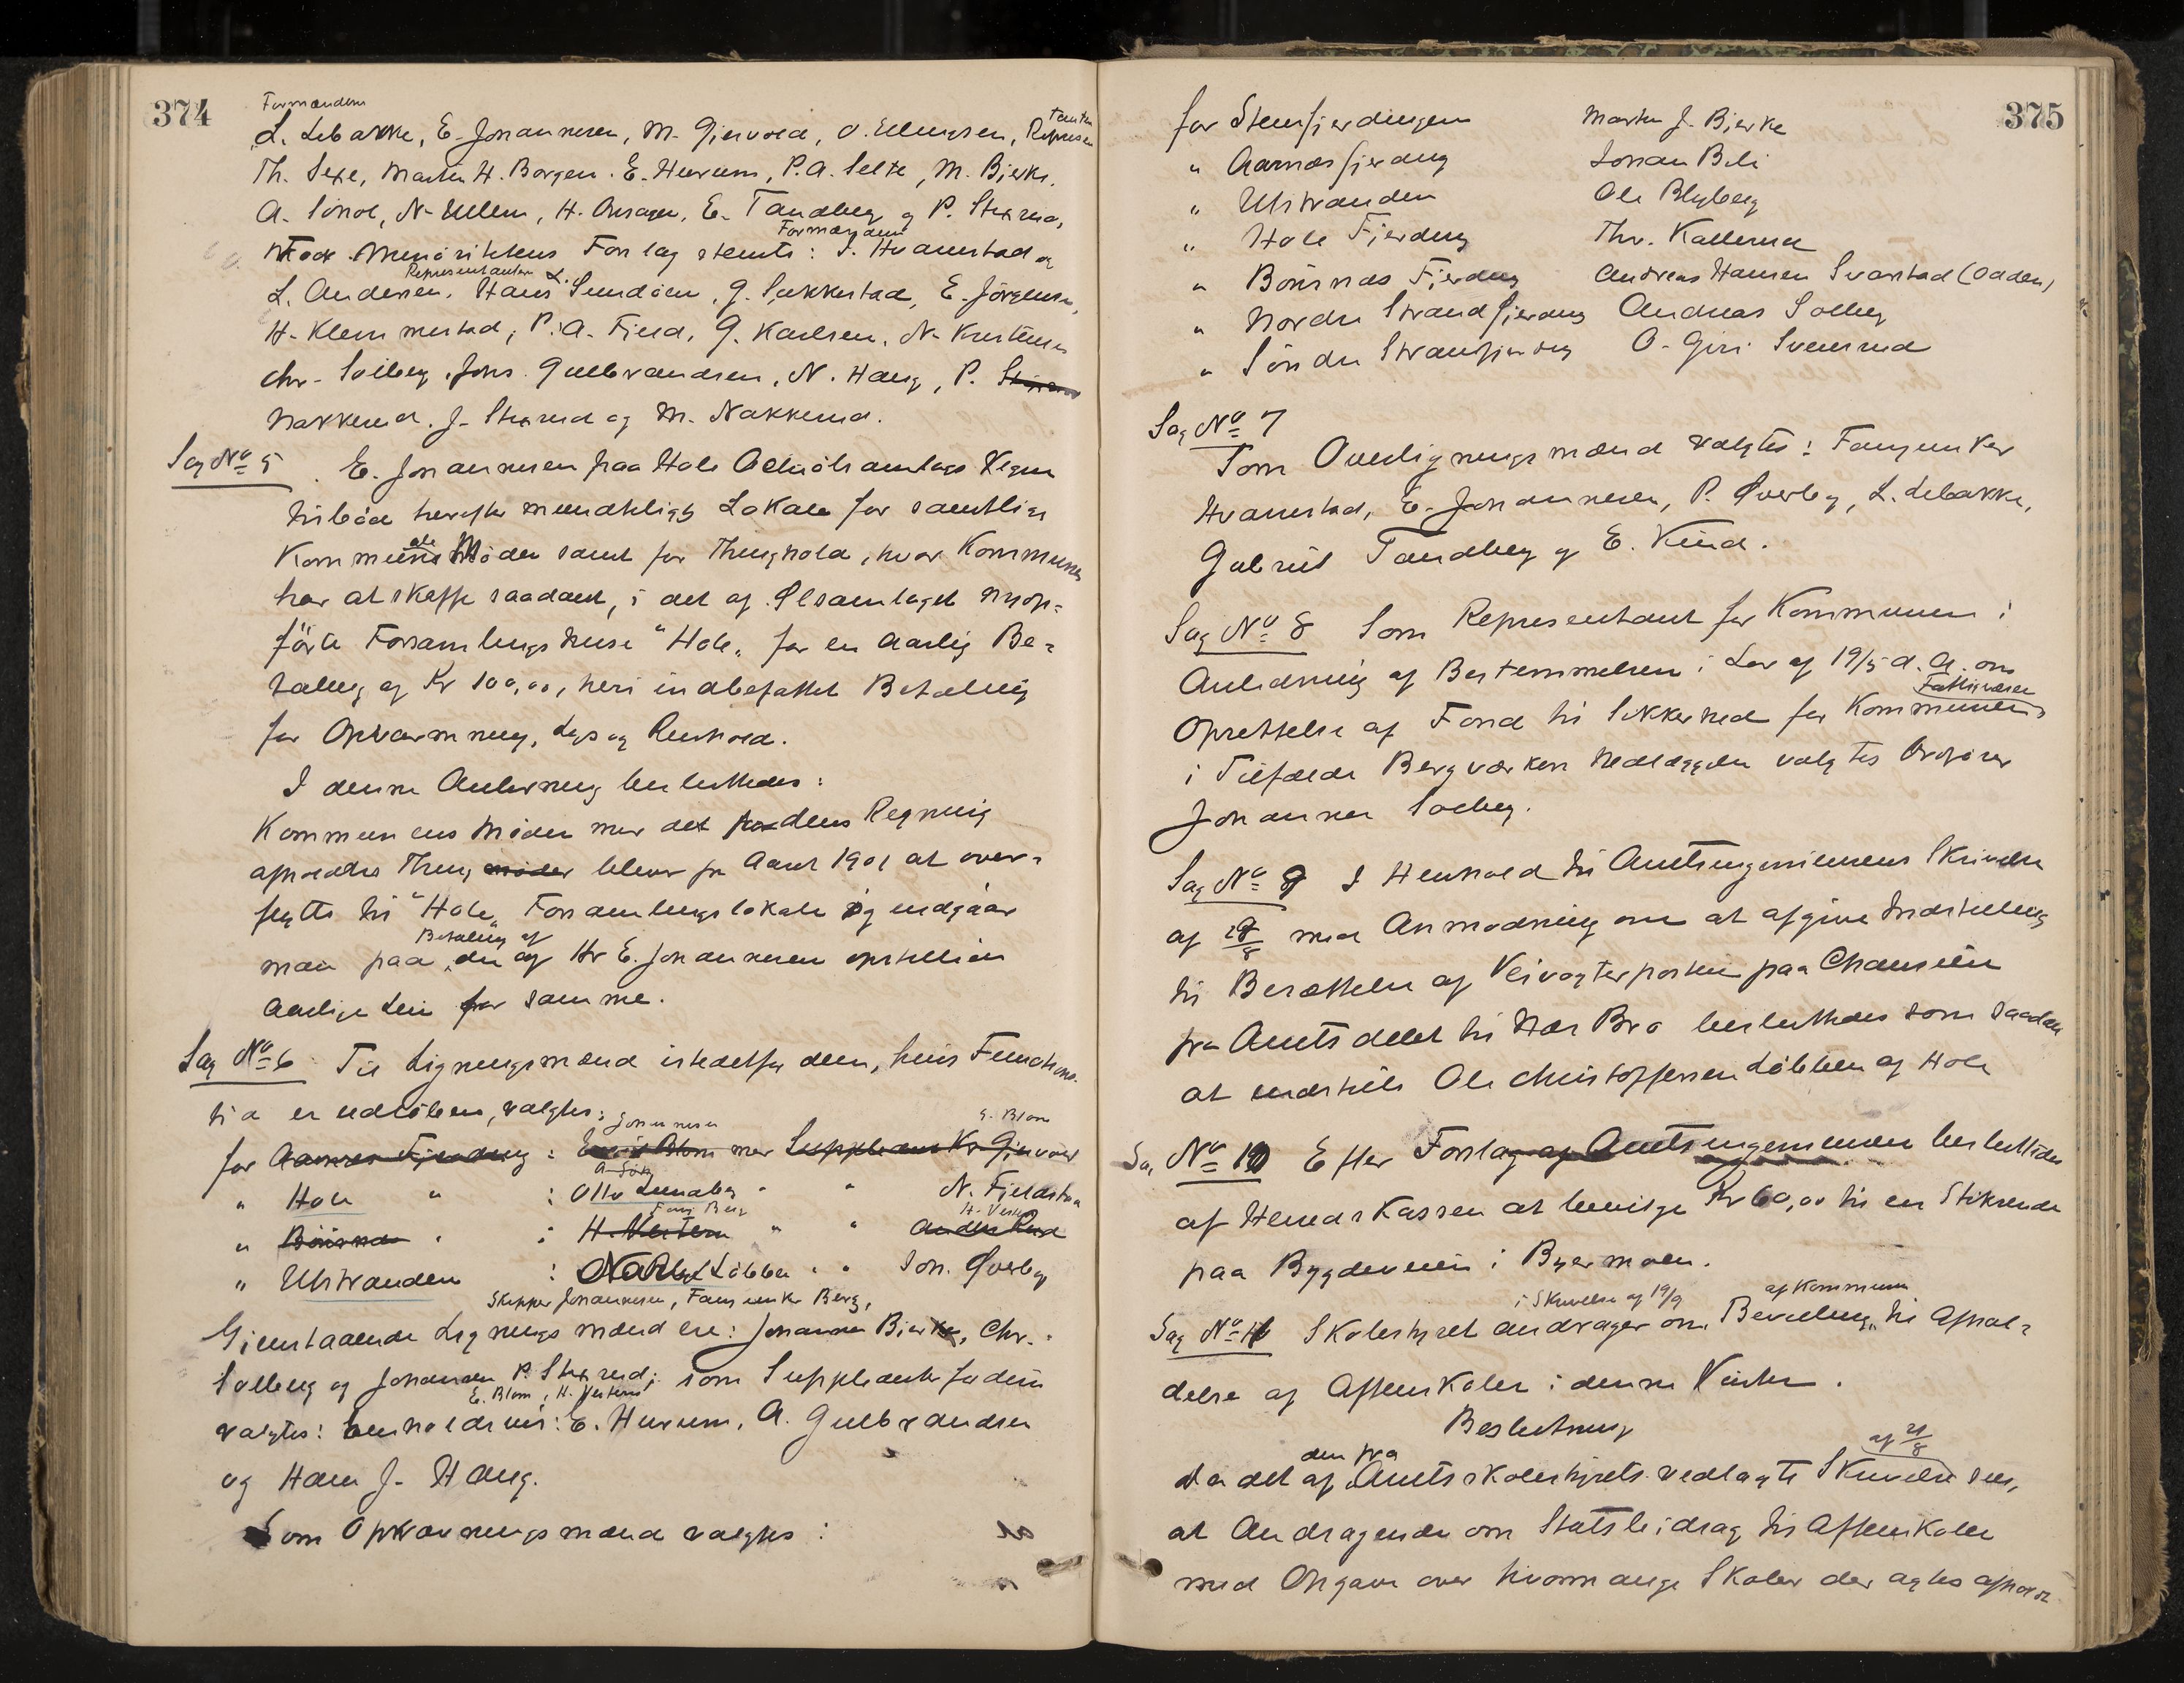 374
Formændene
L. Lebakke, E. Johannesen, M. Gjervold, O. Ellingsen, Represen
tanten
Th. Sexe, Martin H. Borgen. E. Hurum, P. A. Selte, M. Bjerke,
A. Sönol, N. Ullern, H. E. Tandberg og P. Stixrud,
Mod Minöritetens Forslag stemte: Formændene S. Hvamstad og
L. Andersen. Representanten Hans L. Sundöen, G. Sukkestad, E. Jörgensen,
H. Klemmestad, P. A. Fjeld, G. Karlsen, N. Kristensen
Chr. Solberg, Johs. Gulbrandsen, N. Haug, P.
Nakkerud. J. Stixrud og M. Nakkerud.
Sag No 5 E. Johannesen paa Hole Vegne
tilböd herefter mundtligt Lokale for samtlige
Kommunale Möder samt for Thinghold, hvor Kommunen
har at skaffe saadant, i det af Ölsamlaget nyop=
förte Forsamlingshuse "Hole" for en aarlig Be=
taling af Kr 100,00, heri indbefattet Betaling
for Opvarmning, Lys og Renhold.
I denne Anledning besluttedes:
Kommunens Möder med det paa dens Regning
afholdte Thing möder blev fra Aaret 1901 at over=
flytte til "Hole" Forsamlingslokale og indgaar
man paa Betaling af den af Hr E. Johannesen opstillede
aarlige Leie for samme.
Sag No 6 Til Ligningsmænd istedetfor dem, hvis Functions
tid er udlöben, valgtes:
for Aarnæs Fjerding : Johannesen med Suppleant Kr. Gjervold E. Blom
" Hole " : Otto Sundby " " N. Fjeldstad
" Bönsnæs " : H. Vestern " " Anders Rud Fong. Berg H. Vestern
" Utstranden : Löbben " " Joh. Qverby
Skipper Johannesen, Fangenker Berg,
Gjenstaaende Ligningsmænd ere: Johannes Bjerke, Chr.
Solberg og Johannes P. Stixrud; som Suppleanter for dem
E. Blom, H. Vestern
valgtes: henholdsvis: E. Hurum, A. Gulbrandsen
og Hans J. Haug.
Som Opkrævningsmænd valgtes:
375
for Stensfjerdingen Martin J. Bjerke
" Aarnæsfjerding Johan Bili
" Utstranden Ole Blyberg
" Hole Fjerding Thv. Kallerud
" Bönsnæs Fjerding Andreas Hansen Svarstad (Odden)
" Nordre Strandfjerding Andreas Solberg
" Söndre Strandfjerding O. Giri Svensrud
Sag No 7
Som Overligningsmænd valgtes: Fangenker
Hvamstad, E. Johannesen, P. Qverby, L. Lebakke,
Gabriel Tandberg og E. Krud.
Sag No 8 Som Representant for Kommunen i
Anledning af Bestemmelsen i Lov af 19/5 d. A. om
Oprettelse af Fond til Sikkerhed for Kommunens Fattigvæsen
i Tilfælde Bergværkers Nedlæggelse valgtes Ordförer
Johannes Solberg.
Sag No 9 I Henhold til Amtsingeniörens Skrivelse
af 28/8 med Anmodning om at afgive Indstilling
til Besættelse af Veivogterposten paa Chauseen
fra Amtsdelet til Næs Bro besluttedes som saadan
at indstille Ole Christoffersen Löbben af Hole
Sag No 10 Efter Forslag af Amtsingeniören besluttedes
af Herredskassen at bevilge Kr 60,00 til en Stikrende
paa Bygdeveien i Byermoen.
Sag No 11 Skolestyret i Skrivelse af 19/9 andrager om Bevilling af Kommunen til Afhol=
delse af Aftenskoler i denne Vinter.
Beslutning
Da det af den fra Amtsskolestyrets vedlagte Skrivelse af 21/8 sees,
at Andragende om Statsbidrag til Aftenskoler
med Opgave over hvormange Skoler der agtes afholdt